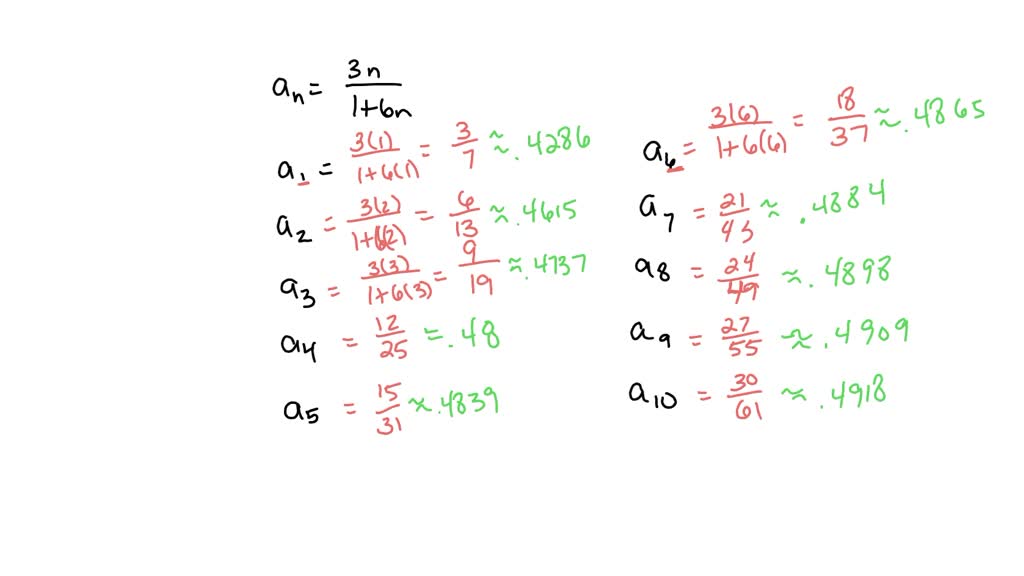 aₙ = 3n / 1+6n
a₁ = 3(1) / 1+6(1) = 3/7 ≈ .4286
a₂ = 3(2) / 1+6(2) = 6/13 ≈ .4615
a₃ = 3(3) / 1+6(3) = 9/19 ≈ .4737
a₄ = 12/25 = .48
a₅ = 15/31 ≈ .4839
a₆ = 3(6) / 1+6(6) = 18/37 ≈ .4865
a₇ = 21/43 ≈ .4884
a₈ = 24/49 ≈ .4898
a₉ = 27/55 ≈ .4909
a₁₀ = 30/61 ≈ .4918